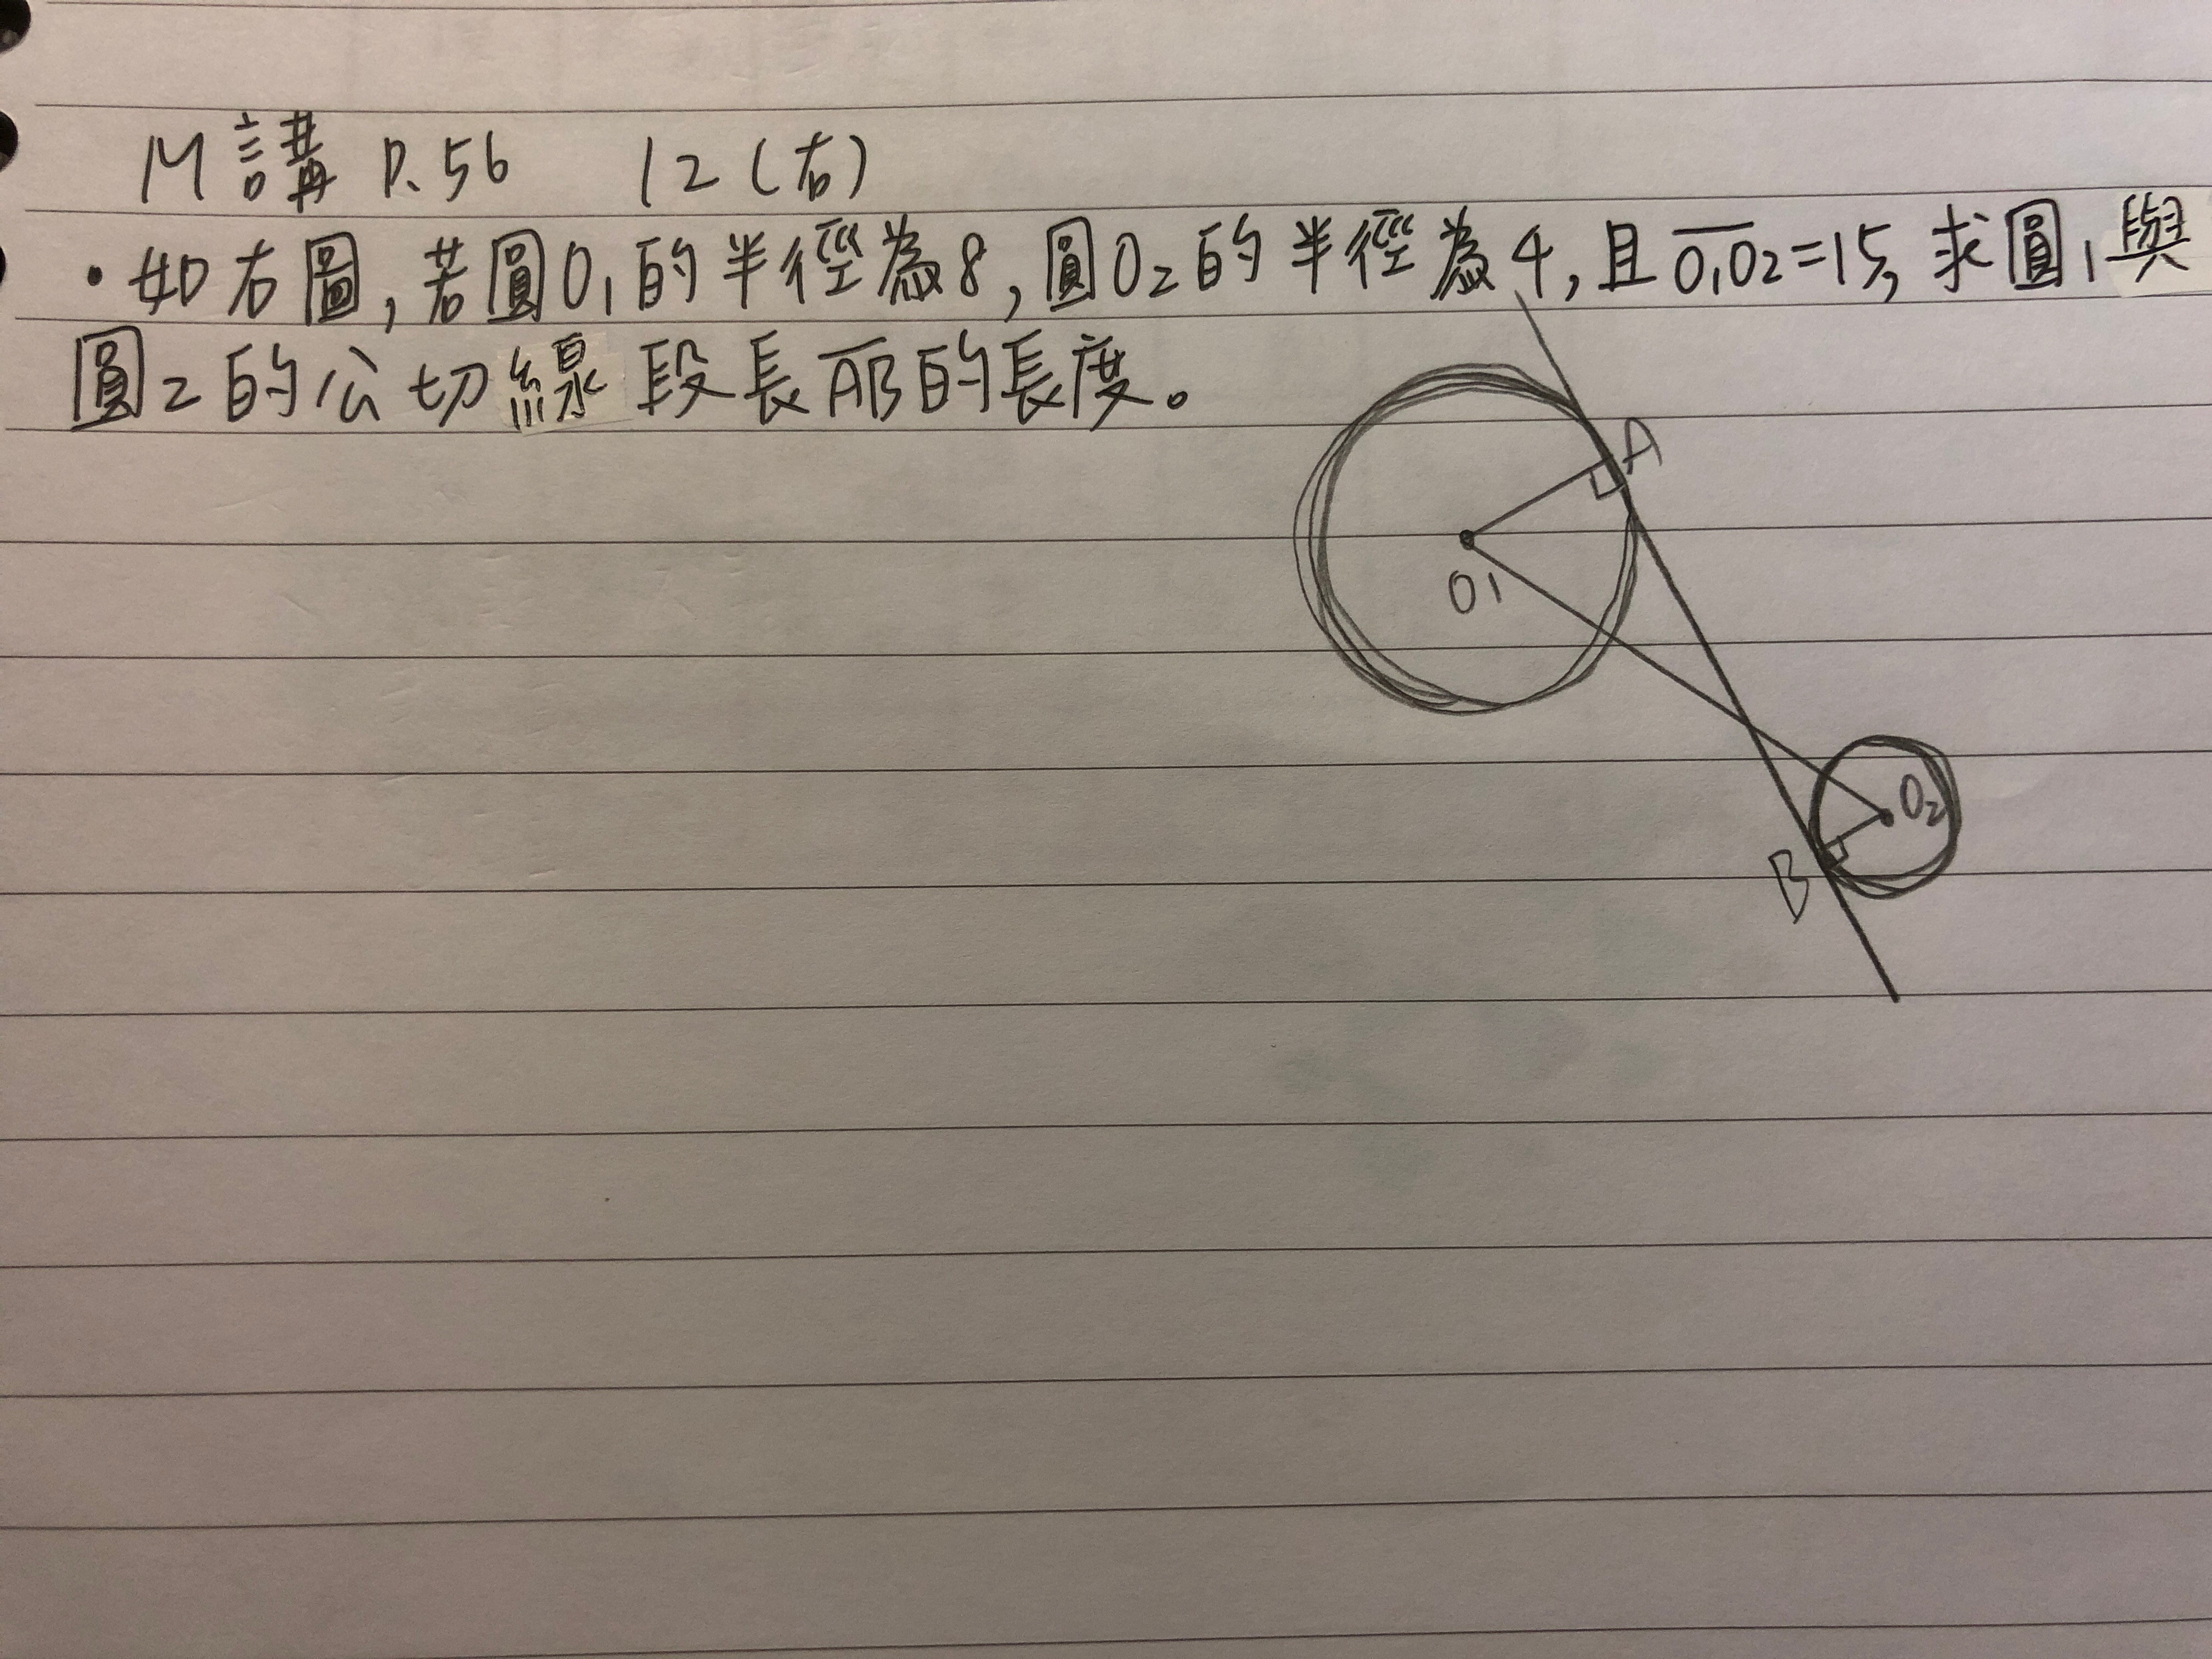 M講 P.56 12(右)
•如右圖,若圓O₁的半徑為8,圓O₂的半徑為4,且O₁O₂=15,求圓1與
圓2的公切線段長AB的長度。
A
O1
O2
B